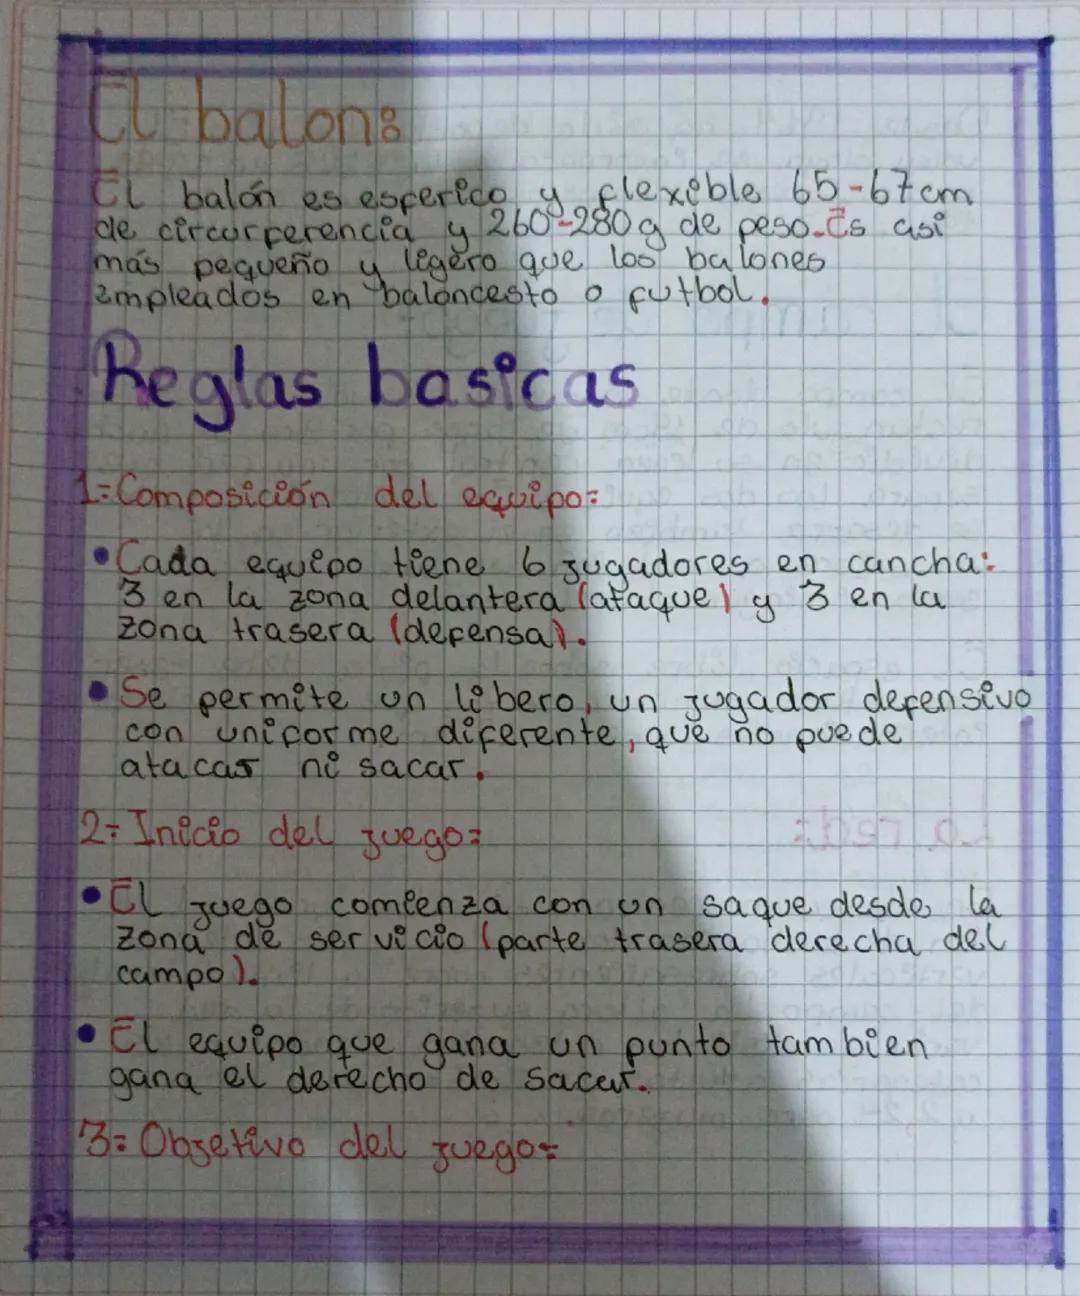 El balon:
El balón es esferico y flexible 65-67cm
de circurferencia y 260-280g de peso. Es asi
más pequeño y ligero que los balones
empleados en baloncesto o futbol.
Reglas basicas
1=Composición del equipo=
• Cada equipo tiene 6 jugadores en cancha:
3 en la zona delantera (ataque) y 3 en la
zona trasera (defensa).
• Se permite un libero, un jugador defensivo
con uniforme diferente, que no puede
atacar ni sacar.
2= Inicio del juego=
• El juego comienza con un saque desde la
zona de servicio (parte trasera derecha del
campo).
• El equipo que gana un punto tambien
gana el derecho de sacar.
3= Objetivo del juego=